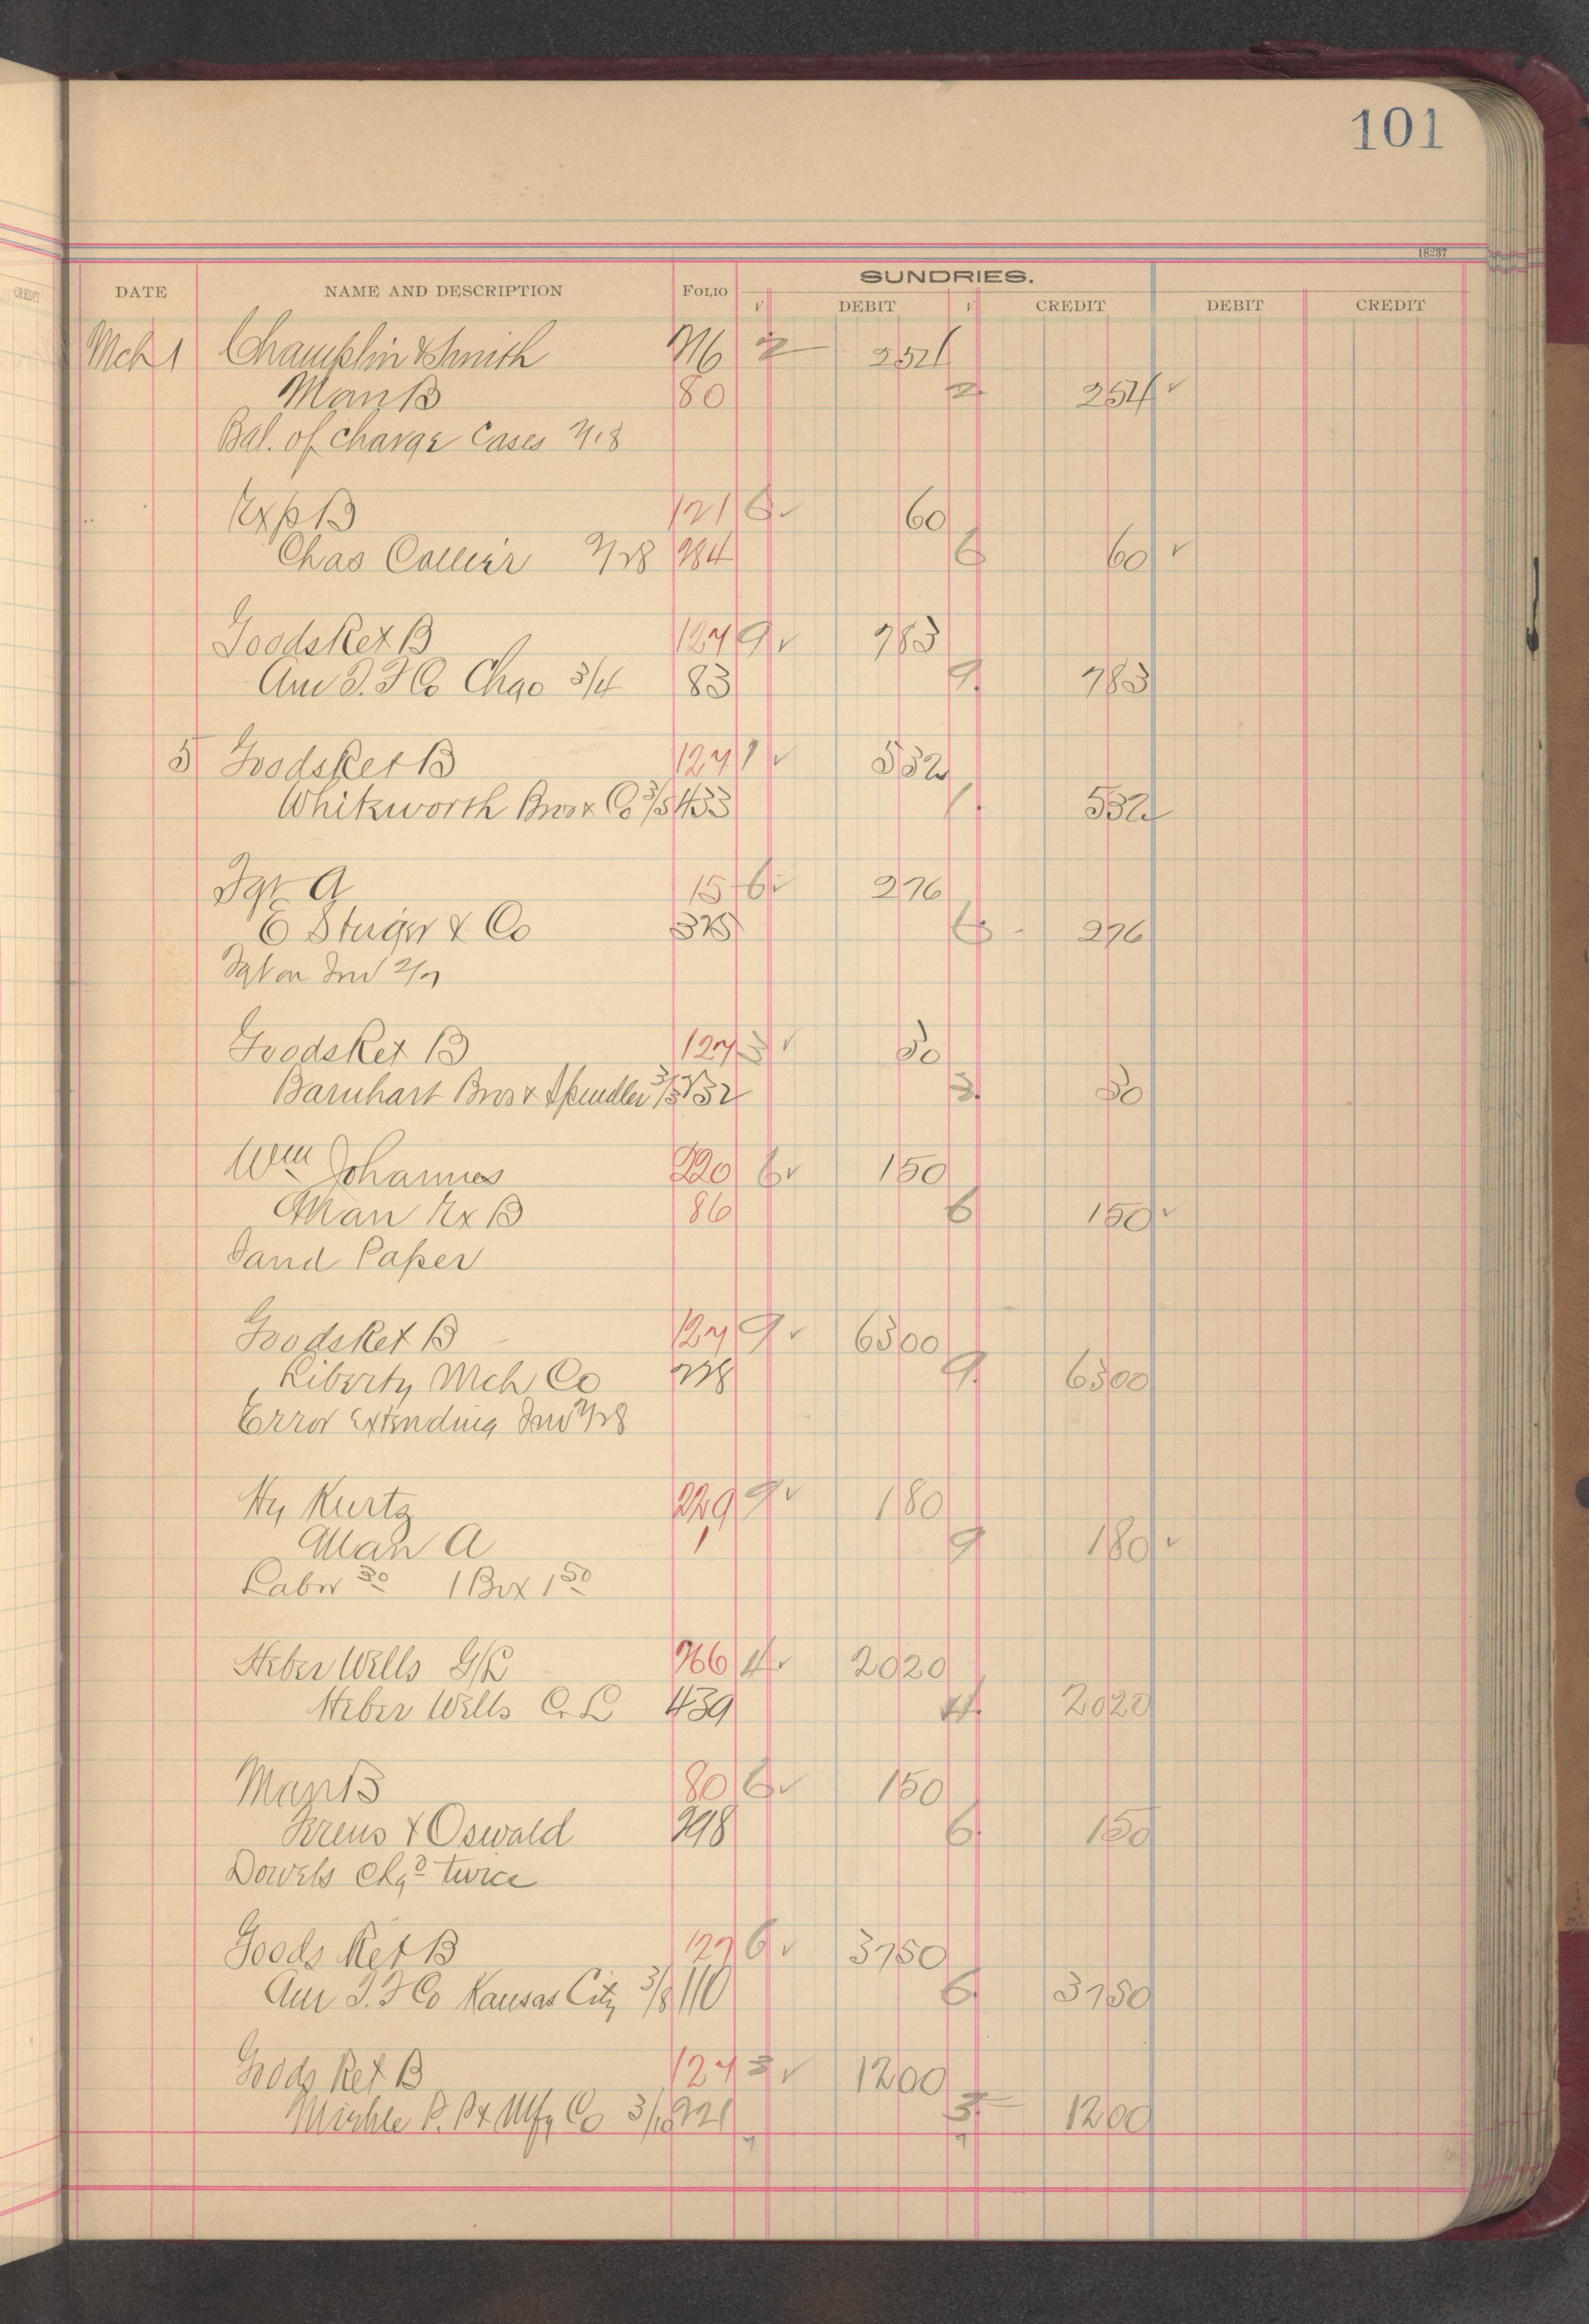 101
18237
SUNDRIES.
DATE NAME AND DESCRIPTION FOLIO √ DEBIT √ CREDIT DEBIT CREDIT
Mch 1 Champlin & Smith 2 254
Man B 80 2 254 ✓
Bal. of charge Cases
Exp B 121 6 ✓ 60
Chas Collier 2/28 284 6 60 ✓
Goods Ret B 127 9 ✓ 783
Am T. F Co Chgo 3/4 83 9 783
5 Goods Ret B 127 1 ✓ 532
Whitworth Bros & Co 3/5 433 1 532
Fgt A 15 6 ✓ 276
E Steiger & Co 325 6 276
Fgt on Inv 2/7
Goods Ret B 127 3 ✓ 50
Barnhart Bros & Spindler 3/5 132 3 50
Wm Johannes 220 6 ✓ 150
Man Ex B 86 6 150 ✓
Sand Paper
Goods Ret B 127 9 ✓ 6300
Liberty Mch Co 228 9 6300
Error Extending Inv 2/28
Hy Kurtz 229 9 ✓ 180
Man A 1 9 180 ✓
Labor 30 1 Box 1 50
Heber Wells G/L 266 4 ✓ 2020
Heber Wells C. L 439 4 2020
Man B 80 6 ✓ 150
& Oswald 298 6 150
Dowels chgd twice
Goods Ret B 127 6 ✓ 3750
Am T. F Co Kansas City 3/8 110 6 3750
Goods Ret B 127 3 ✓ 1200
Miehle P. P & Mfg Co 3/10 221 3 1200